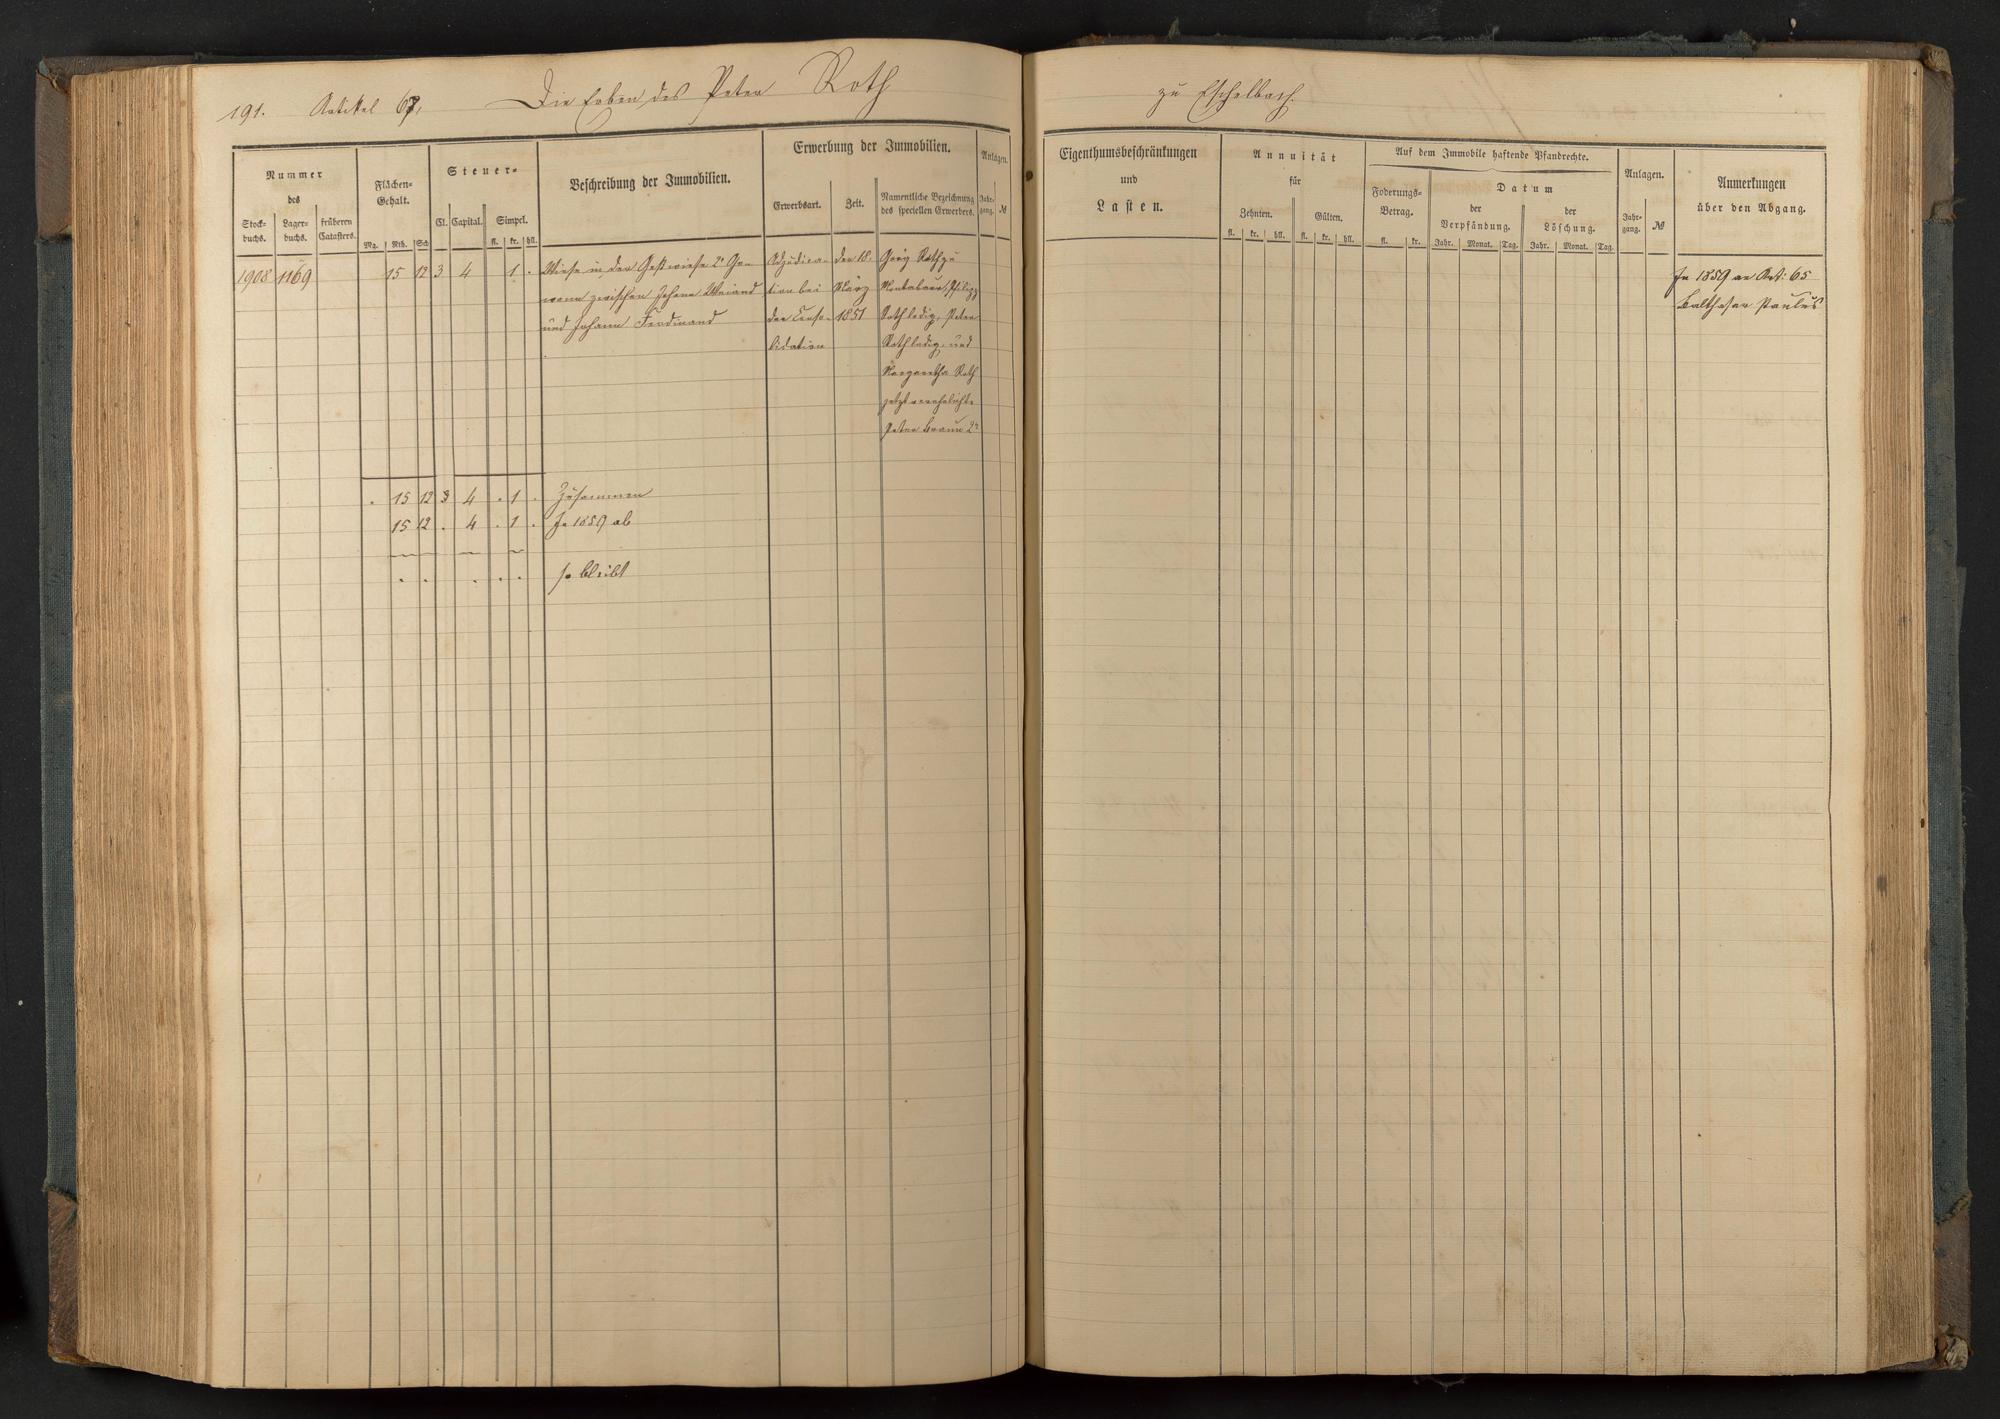 191. Artikel 67, Die Erben des Peter Roth zu Eschelbach.
Nummer
des
Stock-
buchs.
Lager-
buchs.
früheren
Catasters.
Flächen-
Gehalt.
Mg. Rth. Sch
Steuer-
Cl. Capital. Simpel.
fl. kr. hll.
Beschreibung der Immobilien.
Erwerbung der Immobilien.
Erwerbsart. Zeit.
Namentliche Bezeichnung
des speciellen Erwerbers.
Anlagen.
Jahr-
gang.
№
Eigenthumsbeschränkungen
und
Lasten.
Annuität
für
Zehnten. Gülten.
fl. kr. hll. fl. kr. hll.
Auf dem Immobile haftende Pfandrechte.
Foderungs-
Betrag.
fl. kr.
Datum
der
Verpfändung.
Jahr. Monat. Tag.
der
Löschung.
Jahr. Monat. Tag.
Anlagen.
Jahr-
gang.
№
Anmerkungen
über den Abgang.
1908 1169 15 12 3 4 1 .
Wiese in der 2r Ge-
wann zwischen Johann Weiand
und Johann Ferdinand
Adjudica-
tion bei
der Conso-
lidation
den 18.
März
1851
Görg Roth zu
Montabaur, Philipp
Roth ledig, Peter
Roth ledig, und
Margaretha Roth
jetzt verehelichte
Peter Braun 2r
In 1859 an Art: 65
Balthasar Paulus
. 15 12 3 4 . 1 . Zusammen
15 12 . 4 . 1 . In 1859 ab
. . . . . so bleibt